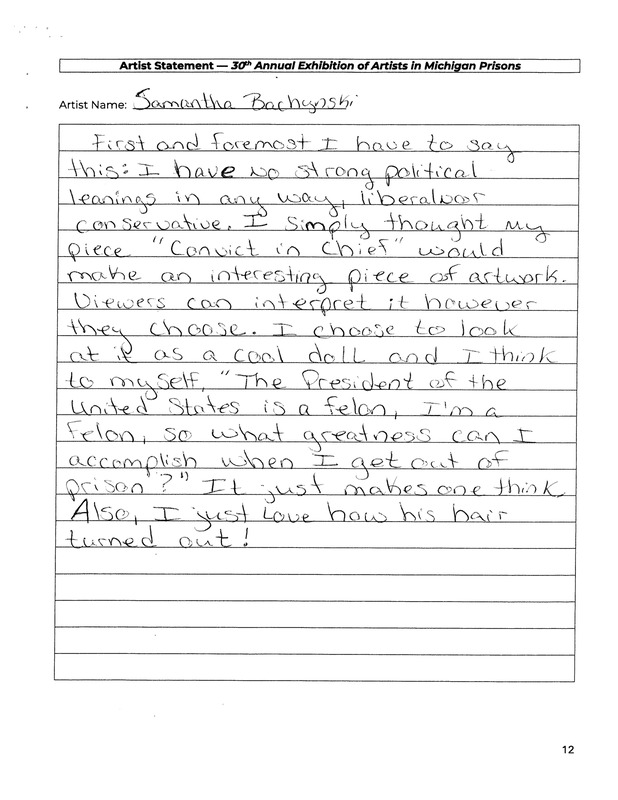 Artist Statement — 30th Annual Exhibition of Artists in Michigan Prisons
Artist Name: Samantha Bachynski
First and foremost I have to say
this: I have no strong political
leanings in any way, liberal or
conservative. I simply thought my
piece "Convict in Chief" would
make an interesting piece of artwork.
Viewers can interpret it however
they choose. I choose to look
at it as a cool doll and I think
to myself, "The President of the
United States is a felon, I'm a
felon, so what greatness can I
accomplish when I get out of
prison?" It just makes one think.
Also, I just Love how his hair
turned out!
12